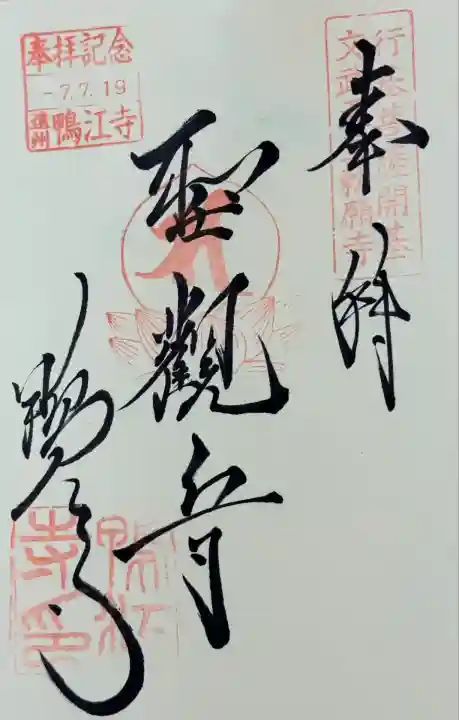 奉拝
行基菩薩開基
文武天皇勅願寺
聖觀音
鴨江寺
奉拝記念
-7.7.19
遠州 鴨江寺
鴨江
寺印